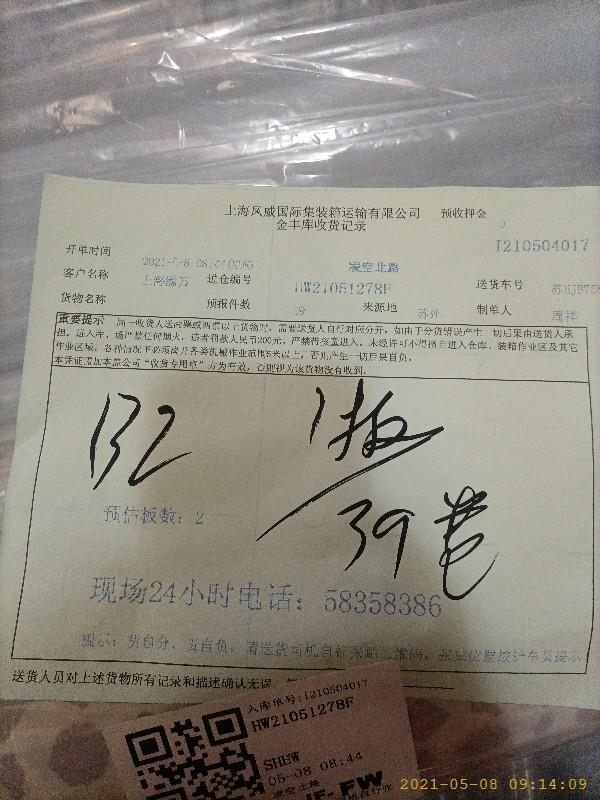 上海风威国际集装箱运输有限公司 预收押金 0
金丰库收货记录
I210504017
开单时间 2021-5-8 08:44 凌空北路
客户名称 上海 进仓编号 HW21051278F 送货车号
货物名称 预报件数 39 来源地 苏州 制单人 周祥
重要提示 同一收货人送两票或两票以上货物时，需要送货人自行对应分开，如由于分货错误产生一切后果由送货人承
担。进入库、场严禁任何烟火，违者罚款人民币200元，严禁带孩童进入。未经许可不得擅自进入仓库、装箱作业区及其它
作业区域。各种情况下必须离开各类机械作业范围5米以上，否则产生一切后果自负。
本凭证需加本盖公司“收货专用章”方为有效，否则视为该货物没有收到。
132 1板
39卷
预估板数：2
现场24小时电话：58358386
提示：货自分、责自负，请送货司机自行
送货人员对上述货物所有记录和描述确认无误
入库单号:I210504017
HW21051278F
SHFW
05-08 08:44
凌空北路
FW
2021-05-08 09:14:09